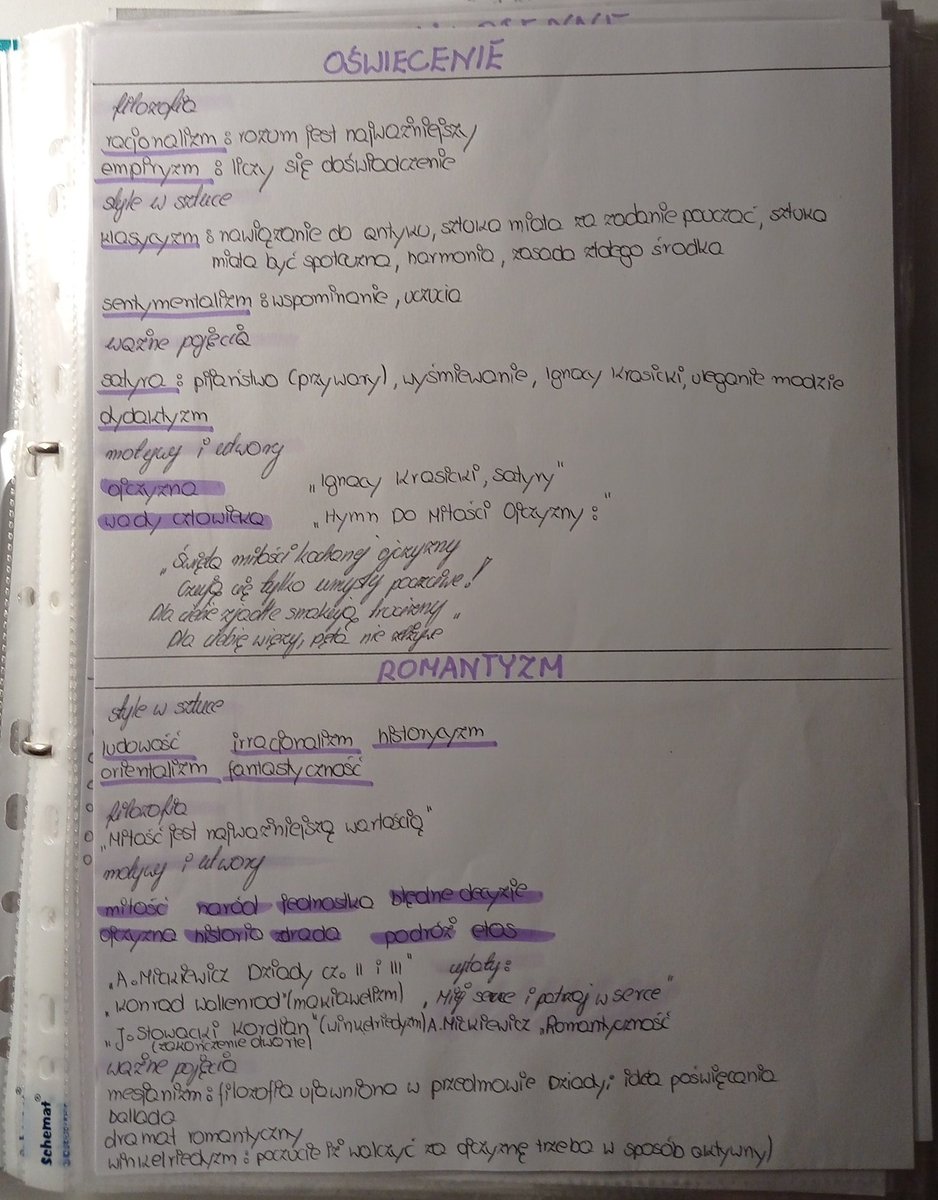 OŚWIECENIE
filozofia
racjonalizm : rozum jest najważniejszy
empiryzm : liczy się doświadczenie
style w sztuce
klasycyzm : nawiązanie do antyku, sztuka miała za zadanie pouczać, sztuka
miała być społeczna, harmonia, zasada złotego środka
sentymentalizm : wspominanie, uczucia
ważne pojęcia
satyra : pijaństwo (przywary), wyśmiewanie, Ignacy Krasicki, uleganie modzie
dydaktyzm
motywy i utwory
ojczyzna „Ignacy Krasicki, satyry"
wady człowieka „Hymn Do Miłości Ojczyzny :"
„Święta miłości kochanej ojczyzny
Czują cię tylko umysły poczciwe!
Dla ciebie zjadłe smakują trucizny „
Dla ciebie więzy, pęta nie
ROMANTYZM
style w sztuce
ludowość irracjonalizm historycyzm
orientalizm fantastyczność
filozofia
„Miłość jest najważniejszą wartością"
motywy i utwory
miłość naród jednostka błędne decyzje
ojczyzna historia zdrada podróż etos
„A. Mickiewicz Dziady cz. II i III" cytaty:
„Konrad Wallenrod" (makiawelizm) „Miej serce i patrzaj w serce"
„J. Słowacki Kordian" (winkelriedyzm) A. Mickiewicz „Romantyczność
(zakończenie otwarte)
ważne pojęcia
mesjanizm : filozofia ujawniona w przedmowie Dziady; idea poświęcania
ballada
dramat romantyczny
winkelriedyzm : poczucie iż walczyć za ojczyznę trzeba w sposób aktywny)
schemat